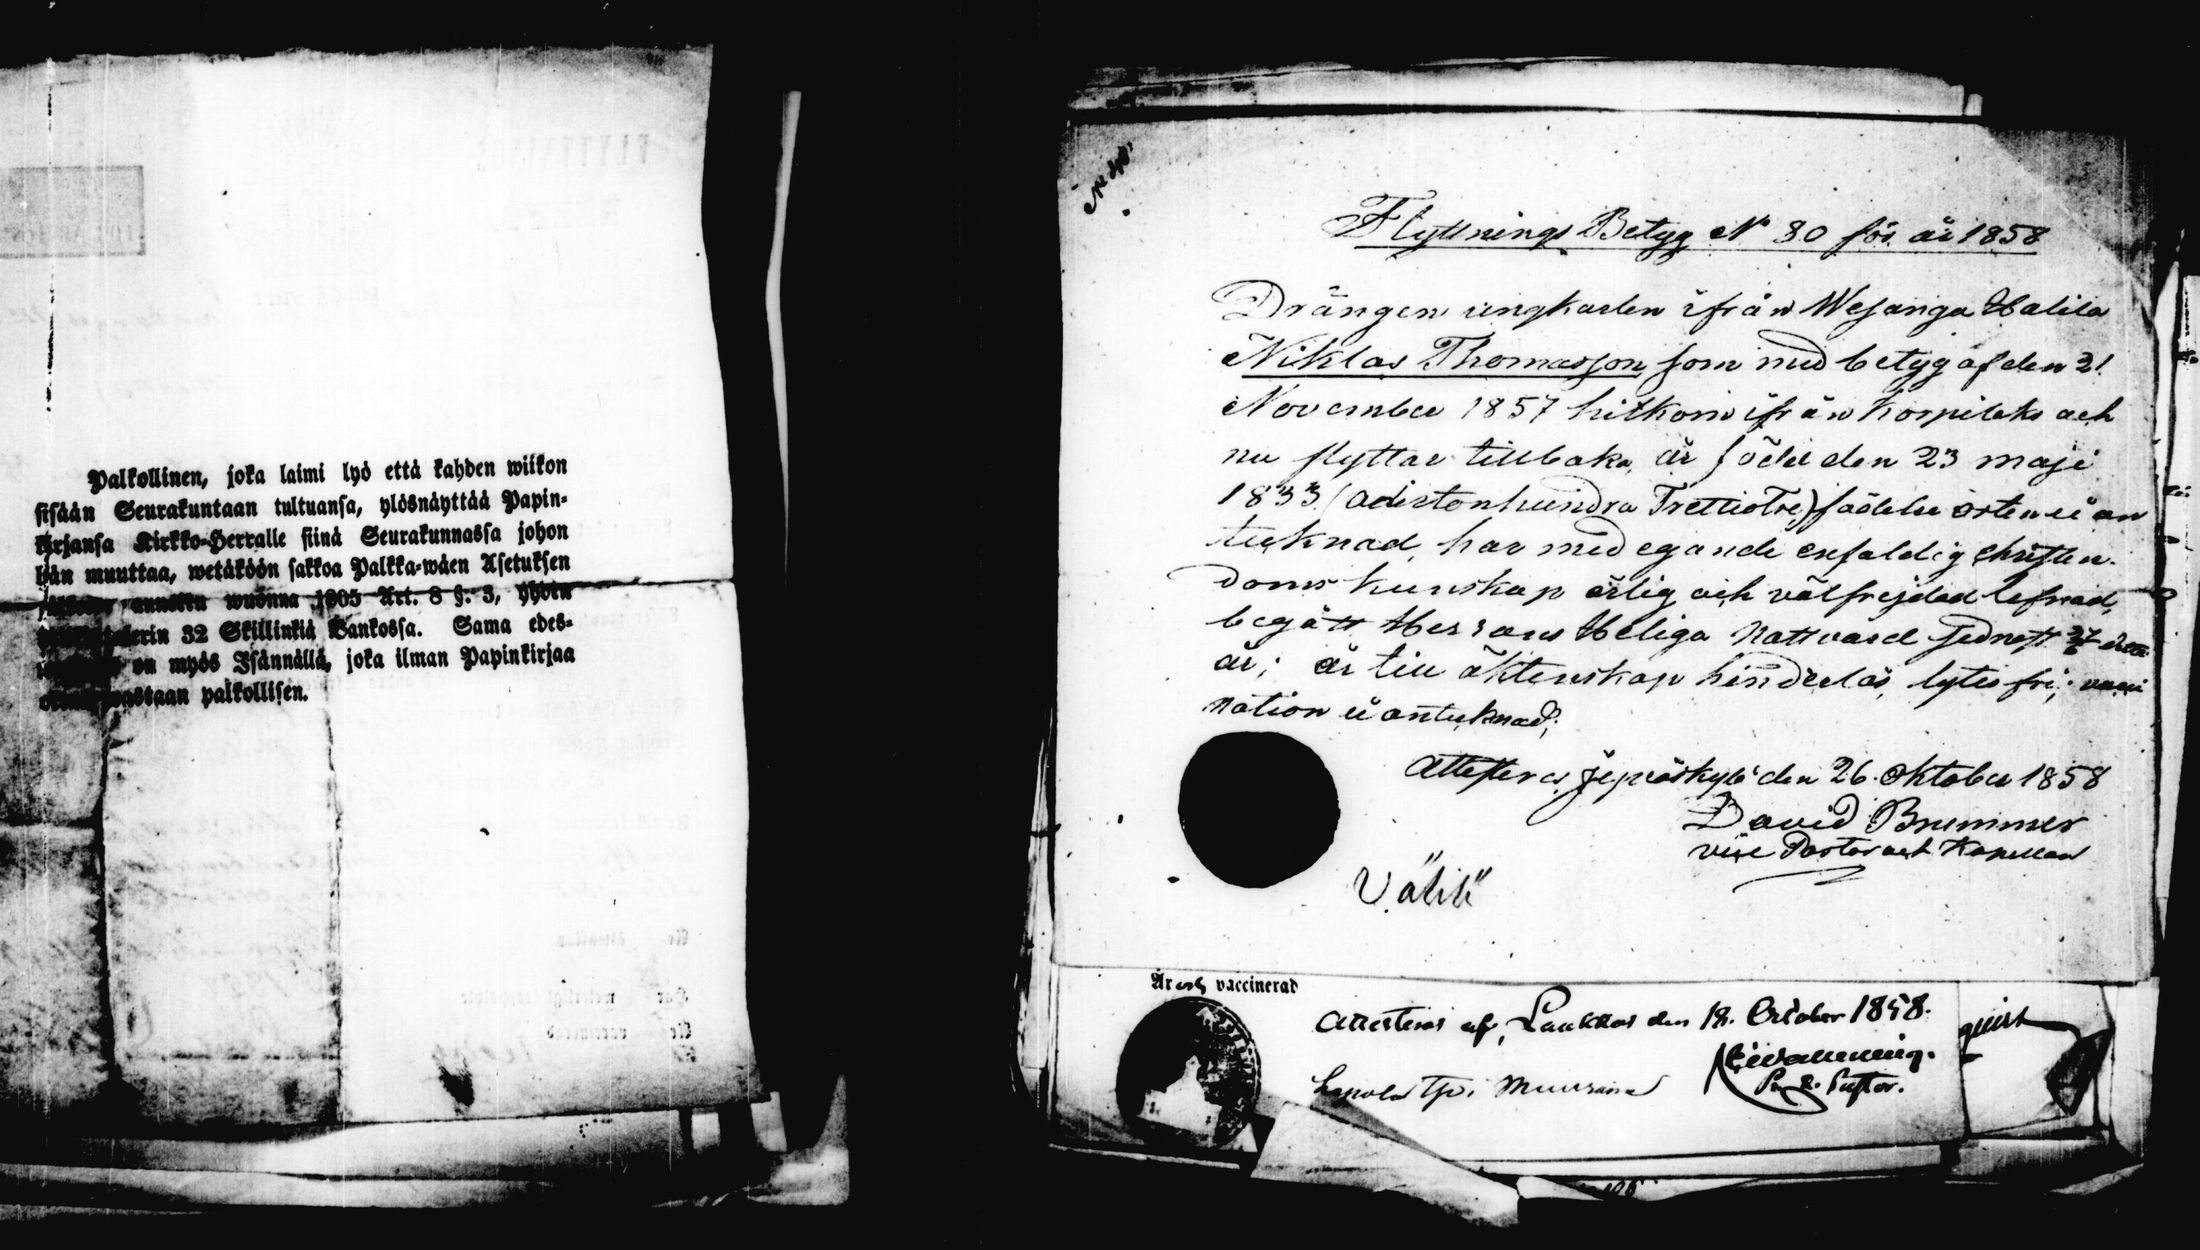 Palkollinen, joka laimi lyö että kahden wiikon
sisään Seurakuntaan tultuansa, ylösnäyttää Papin-
kirjansa Kirkko-Herralle siinä Seurakunnassa johon
hän muuttaa, wetäköön sakkoa Palkka-wäen Asetuksen
wuonna 1805 Art. 8 §. 3, yhden
32 Skillinkiä Bankossa. Sama edes-
on myös Isännällä, joka ilman Papinkirjaa
palkollisen.
Flyttnings Betyg No 30 för år 1858
Drängen ungkarlen ifrån Wesanga Halila
Niklas Thomasson som med betyg af den 21
November 1857 hitkom ifrån Korpilaks och
nu flyttar tillbaka, är född den 23 maji
1833 (adertonhundra Trettiotre) födelse orten ei an
tecknad, har med egande enfaldig christen-
doms kunskap ärlig och välfrejdad lefnad,
begått Herrans Heliga Nattvard sednast
år; är till äktenskap hinderlös, lytes fri; vacci
nation ei antecknad;
Attesteras Jepuaskylä den 26 Oktober 1858
David Brummer
vice Pastor och Kapellan
Är och vaccinerad
Attesteras af, Laukkas den 18. October 1858.